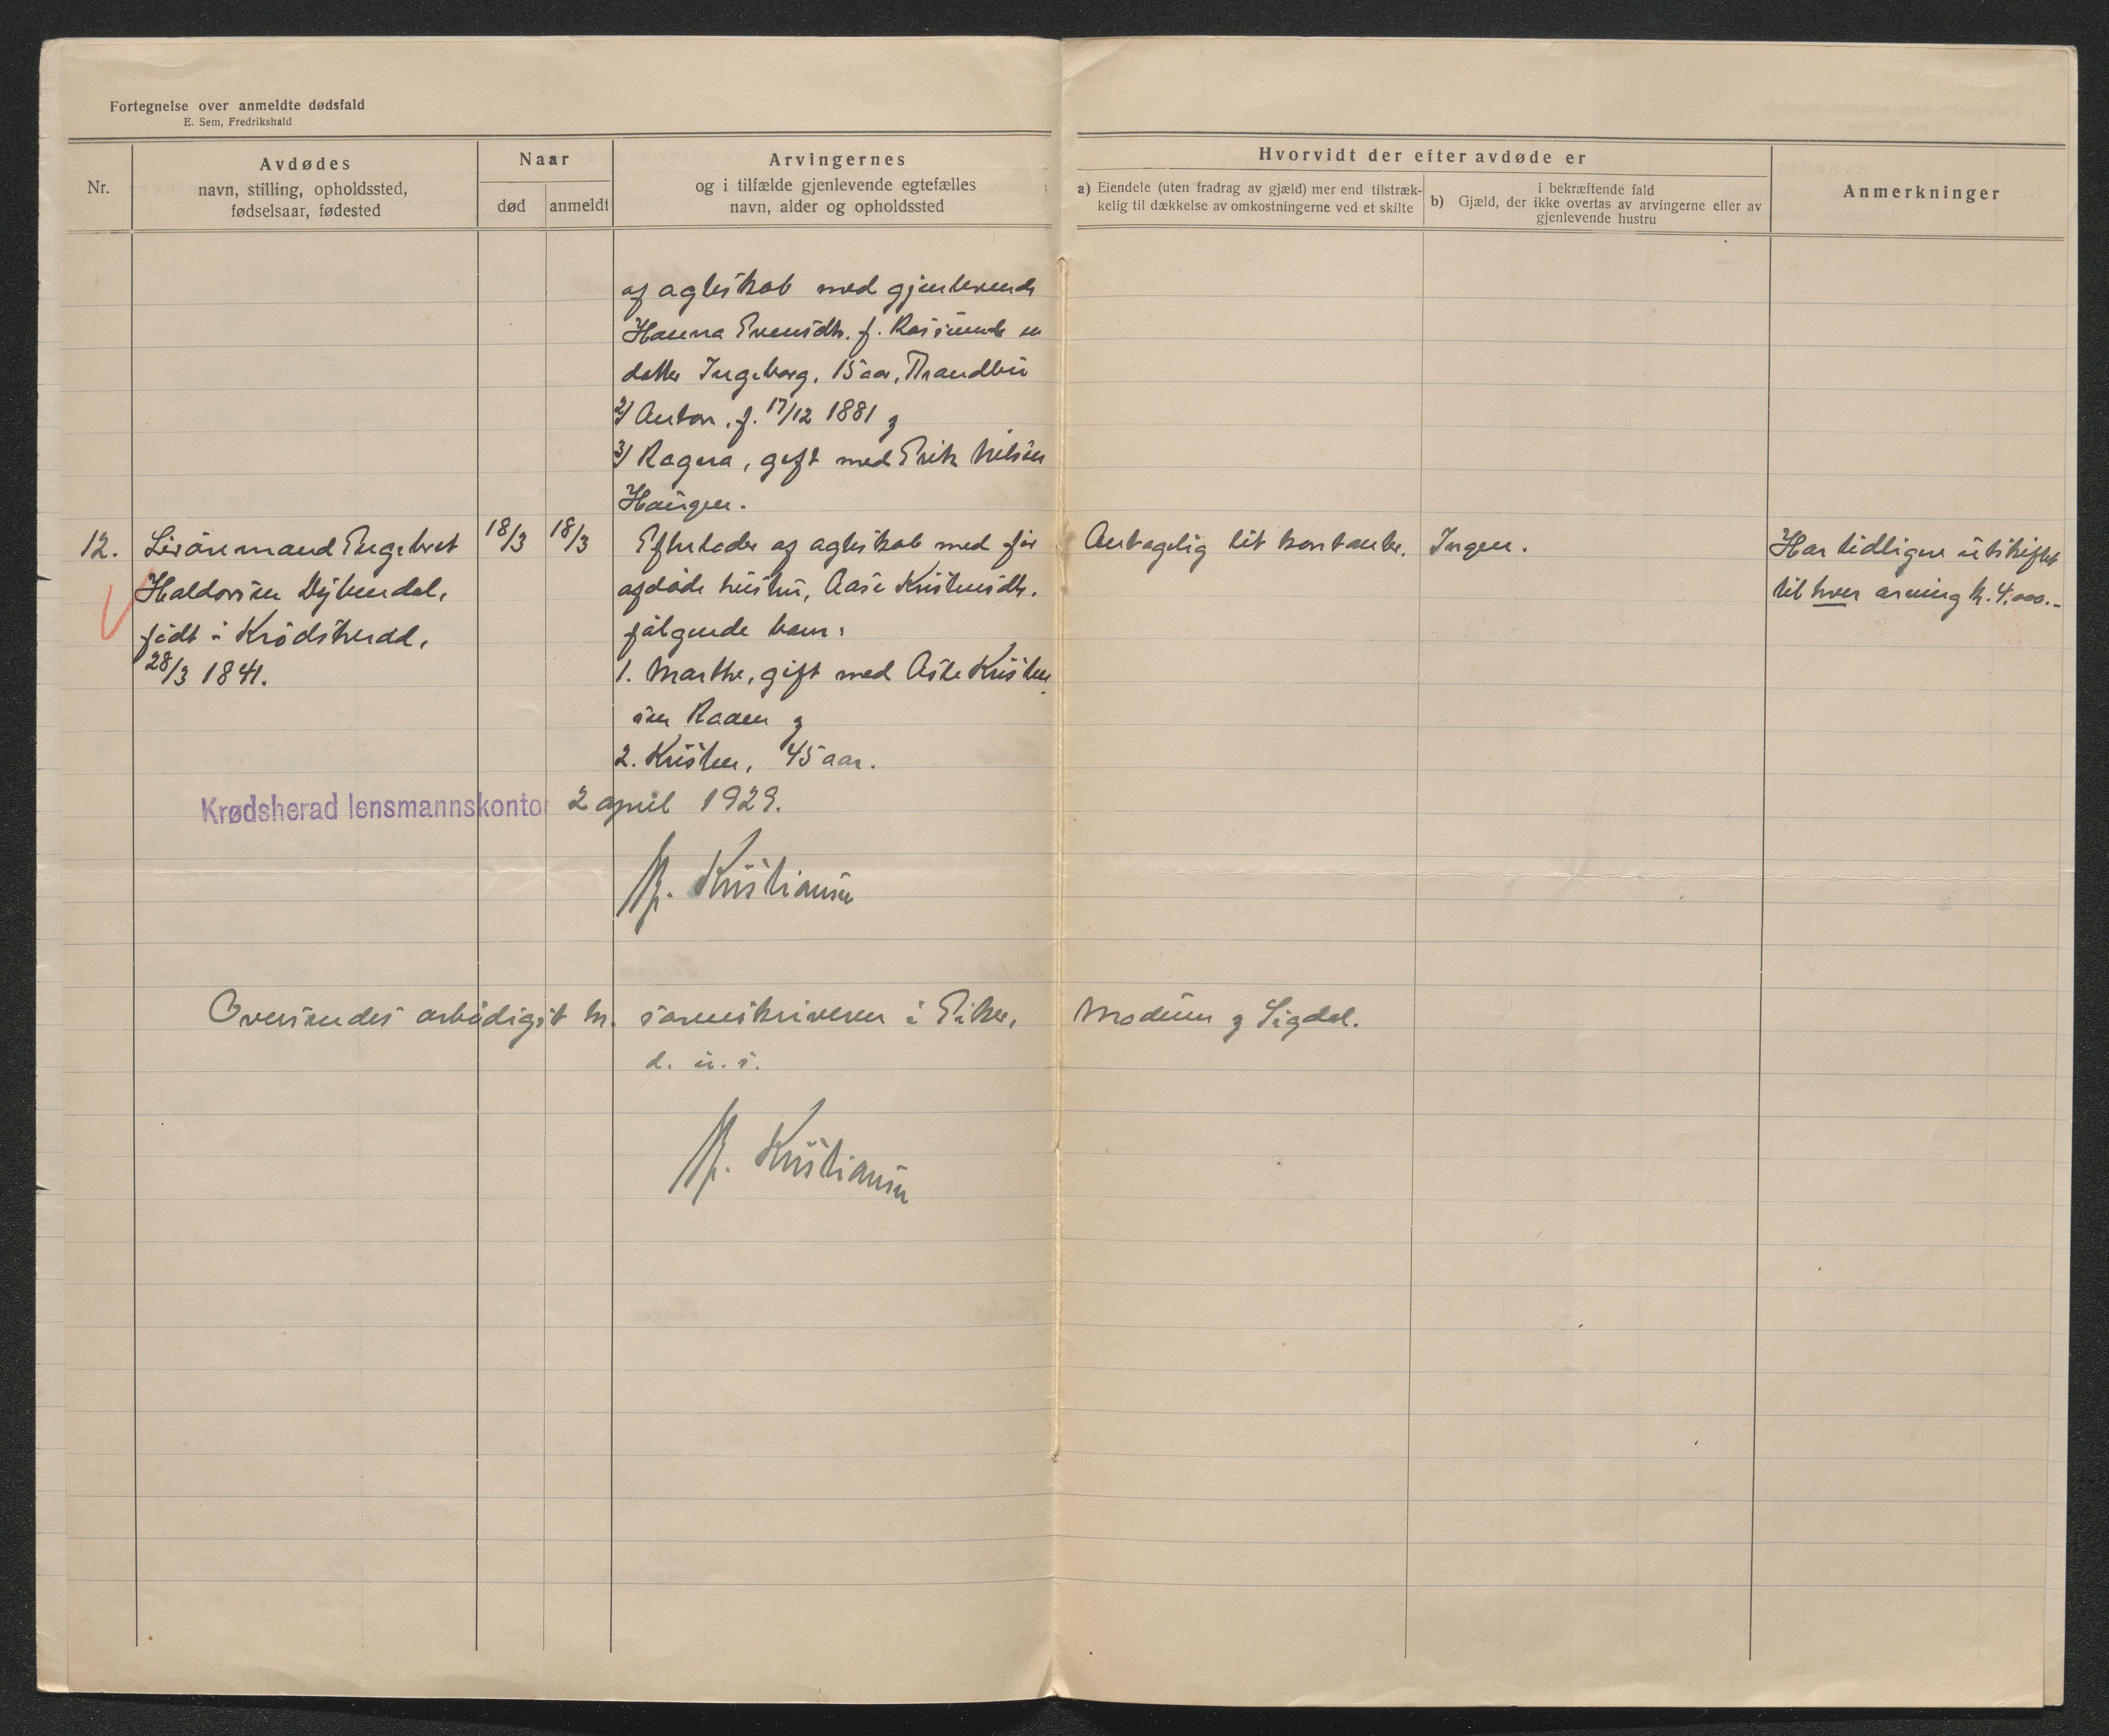 Fortegnelse over anmeldte dødsfald
E. Sem, Fredrikshald
Nr.
Avdødes
navn, stilling, opholdssted,
fødselsaar, fødested
Naar
død
anmeldt
Arvingernes
og i tilfælde gjenlevende egtefælles
navn, alder og opholdssted
Hvorvidt der efter avdøde er
a) Eiendele (uten fradrag av gjæld) mer end tilstræk-
kelig til dækkelse av omkostningerne ved et skifte
b)
i bekræftende fald
Gjæld, der ikke overtas av arvingerne eller av
gjenlevende hustru
Anmerkninger
af ægteskab med gjenlevende
Hanna Evensdtr. f. en
datter Ingeborg, 15 aar,
2/ Anton, f. 17/12 1881 og
3/ Ragna, gift med Erik Nilsen
Haugen.
12.
Livøremand Engebret
Haldorsen Dybendal,
født i Krødsherad,
28/3 1841.
18/3
18/3
Efterlader af ægteskab med før
afdøde hustru, Aase Kristensdtr.
følgende barn:
1. Marthe, gift med Aste Kristen
sen Raaen og
2. Kristen, 45 aar.
Antagelig lit kontanter.
Ingen.
Har tidligere utskiftet
til hver arving kr. 4.000.-
Krødsherad lensmannskontor 2 april 1929.
Kristiansen
Oversendes ærbødigst hr. sorenskriveren i Eiker, Modum og Sigdal.
d. u. s.
Kristiansen